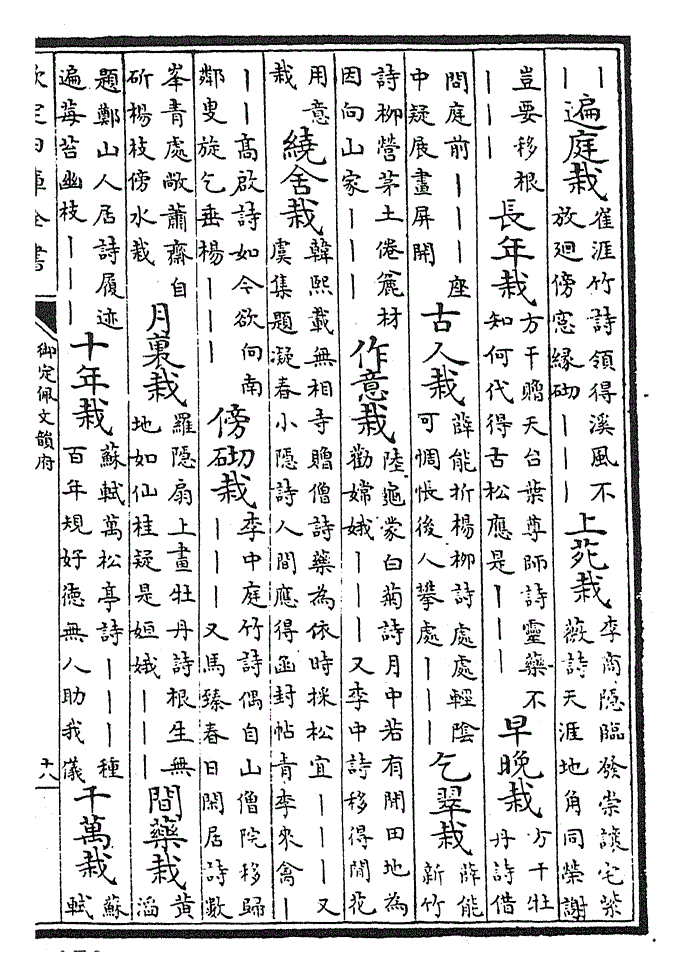 丨
丨
遍庭栽
崔涯竹詩領得溪風不
放廻傍窓縁砌丨丨丨
上苑栽
李商隱臨發崇讓宅紫
薇詩天涯地角同榮謝
豈要移根
丨丨丨
長年栽
方干贈天台葉尊師詩靈藥不
知何代得古松應是丨丨丨
早晚栽
方干牡
丹詩借
問庭前丨丨丨座
中疑展畫屏開
古人栽
薛能折楊柳詩處處輕陰
可惆悵後人攀處丨丨丨
乞翠栽
薛能
新竹
詩柳營茅土倦麄材
因向山家丨丨丨
作意栽
陸龜蒙白菊詩月中若有閒田地為
勸嫦娥丨丨丨又李中詩移得閒花
用意
栽
繞舍栽
韓熙載無相寺贈僧詩藥為依時採松宜丨丨丨又
虞集題凝春小隱詩人間應得函封帖青李來禽丨
丨丨髙啟詩如今欲向南
鄰叟旋乞垂楊丨丨丨
傍砌栽
李中庭竹詩偶自山僧院移歸
丨丨丨又馬臻春日閒居詩數
峯青處敞蕭齋自
斫楊枝傍水栽
月裏栽
羅隱扇上畫牡丹詩根生無
地如仙桂疑是姮娥丨丨丨
間藥栽
黄
滔
題鄭山人居詩履迹
遍莓苔幽枝丨丨丨
十年栽
蘇軾萬松亭詩丨丨丨種
百年規好德無人助我儀
千萬栽
蘇
軾
欽定四庫全書
御定佩文韻府
十八